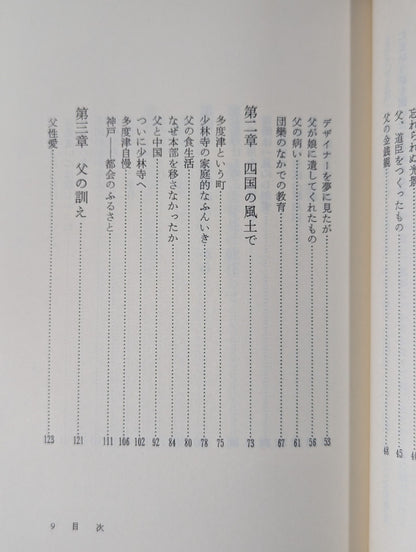 忘れられぬ光景
父、道臣をつくったもの……45
父の金銭観……48
デザイナーを夢に見たが……53
父が娘に遺してくれたもの……56
父の病い……61
団欒のなかでの教育……67
第二章 四国の風土で……73
多度津という町……75
少林寺の家庭的なふんいき……78
父の食生活……80
なぜ本部を移さなかったか……84
父と中国……92
ついに少林寺へ……102
多度津自慢……106
神戸――都会のふるさと……111
第三章 父の訓え……121
父性愛……123
9 目 次